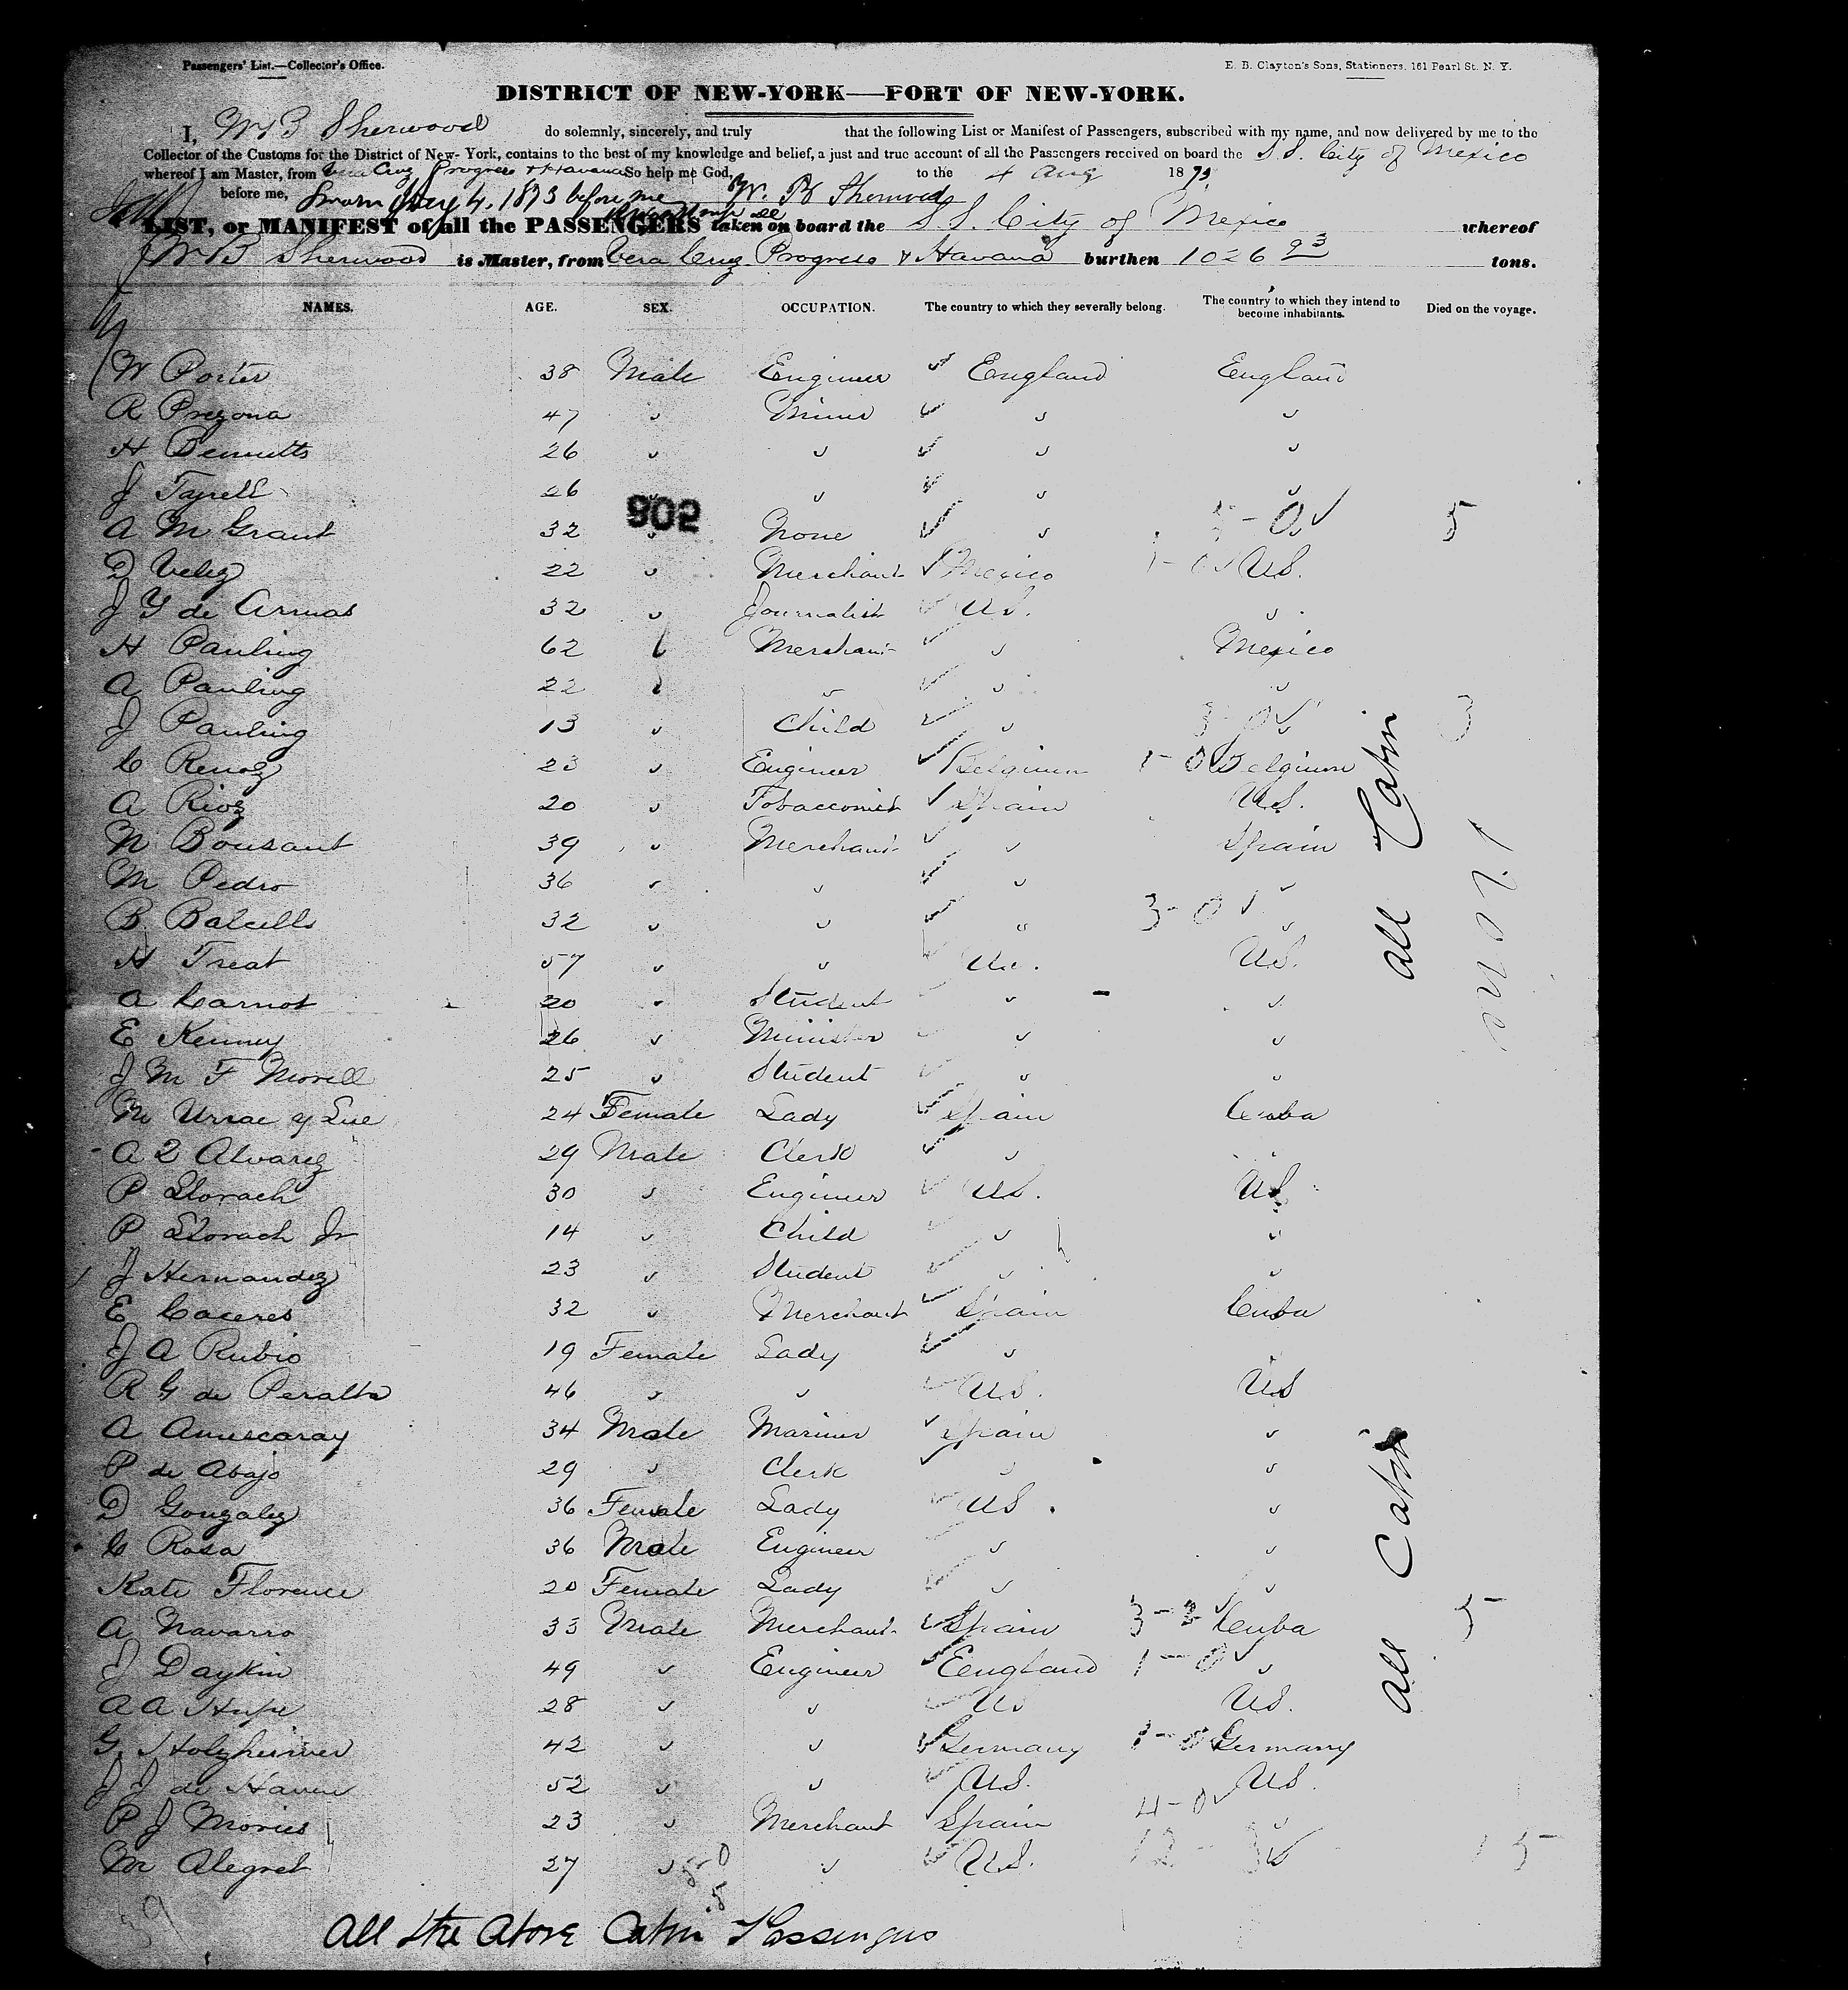 Passengers' List.—Collector's Office.
E. B. Clayton's Sons, Stationers, 161 Pearl St. N. Y.
DISTRICT OF NEW-YORK—PORT OF NEW-YORK.
I, W B Sherwood do solemnly, sincerely, and truly that the following List or Manifest of Passengers, subscribed with my name, and now delivered by me to the
Collector of the Customs for the District of New-York, contains to the best of my knowledge and belief, a just and true account of all the Passengers received on board the S.S. City of Mexico
whereof I am Master, from Vera Cruz Progreso & Havana So help me God, to the 4 Aug 1873
before me, Sworn Aug 4. 1873 before me W. B Sherwood
LIST, or MANIFEST of all the PASSENGERS taken on board the S S. City of Mexico whereof
W B Sherwood is Master, from Vera Cruz Progreso & Havana burthen 1026 93 tons.
NAMES. AGE. SEX. OCCUPATION. The country to which they severally belong. The country to which they intend to become inhabitants. Died on the voyage.
W Porter 38 Male Engineer England England
R Prezona 47 " Miner " "
H Bennetts 26 " " " "
J Tayrell 26 " " " "
902
A M Grant 32 " None " " 5-0 5
D Velez 22 " Merchant Mexico 1-0 US.
J Y de Armas 32 " Journalist US. "
H Pauling 62 " Merchant " Mexico
A Pauling 22 " " " "
J Pauling 13 " Child " 3-0 " 3
C Renoz 23 " Engineer Belgium 1-0 Belgium
A Rioz 20 " Tobacconist Spain US.
N Bousant 39 " Merchant " Spain
M Pedro 36 " " " "
B. Balcells 32 " " " 3-0 "
H Treat 57 " " US. US.
A Carnot 20 " Student " "
E Kenney 26 " Minister " "
J M F Morell 25 " Student " "
M Urrac y Lue 24 Female Lady Spain Cuba
A Z Alvarez 29 Male Clerk " "
P Llorach 30 " Engineer US. US
P Llorach Jr 14 " Child " "
J Hernandez 23 " Student " "
E Caceres 32 " Merchant Spain Cuba
J A Rubio 19 Female Lady " "
R G de Peralta 46 " " US. US
A Amuscaray 34 Male Mariner Spain "
P de Abajo 29 " Clerk " "
D Gonzalez 36 Female Lady US. "
C Rosa 36 Male Engineer " "
Kate Florence 20 Female Lady " "
A Navarro 33 Male Merchant Spain 3-2 Cuba 5
J Daykin 49 " Engineer England 1-0 "
A A Hupe 28 " " US US.
G. Holzheimer 42 " " Germany 1-0 Germany
J J de Haven 52 " " US. US.
P J Mories 23 " Merchant Spain 4-0 "
M Alegret 27 " " US. " 15
All Cabin
None
All Cabin
39
All the Above Cabin Passengers